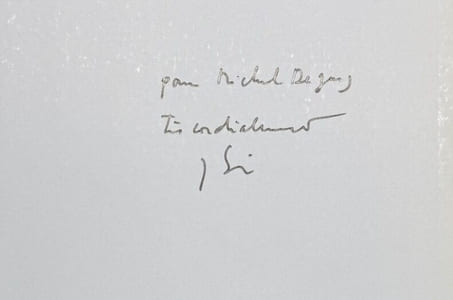 pour Michel Deguy
très cordialement
J